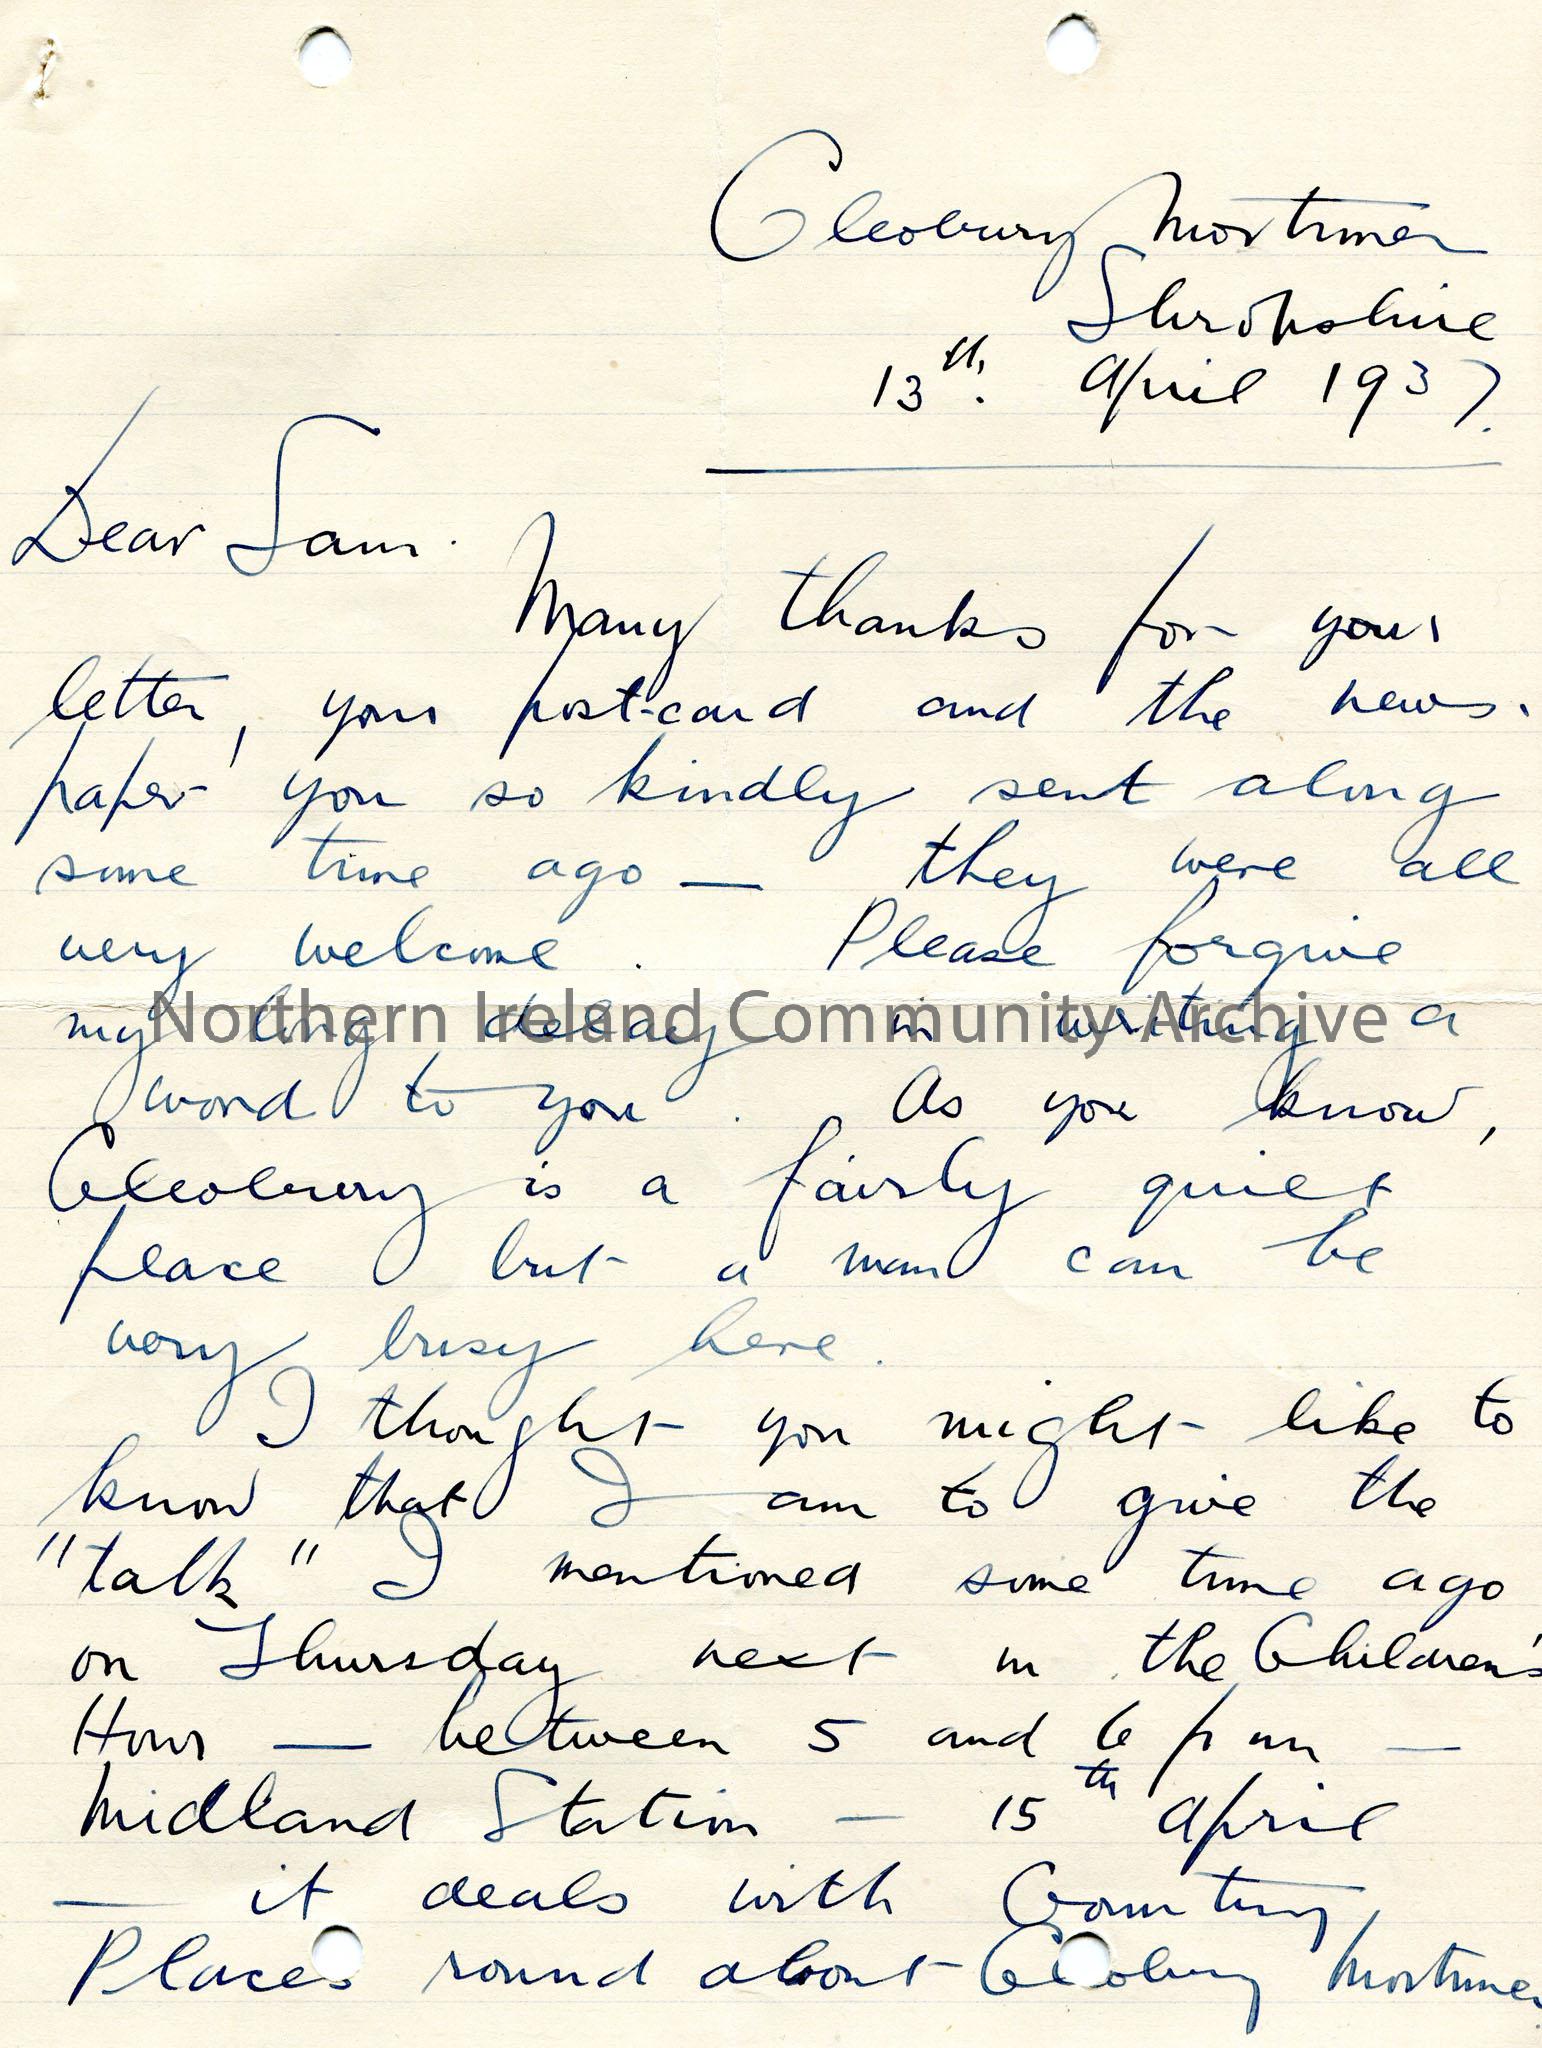 Cleobury Mortimer
Shropshire
13th. April 1937.
Dear Sam.
Many thanks for your
letter, your post-card and the news-
paper you so kindly sent along
some time ago — they were all
very welcome. Please forgive
my long delay in writing a
word to you. As you know,
Cleobury is a fairly quiet
place but a man can be
very busy here.
I thought you might like to
know that I am to give the
"talk" I mentioned some time ago
on Thursday next in the Children's
Hour — between 5 and 6 pm —
Midland Station — 15th April
— it deals with Country
Places round about Cleobury Mortimer
Northern Ireland Community Archive